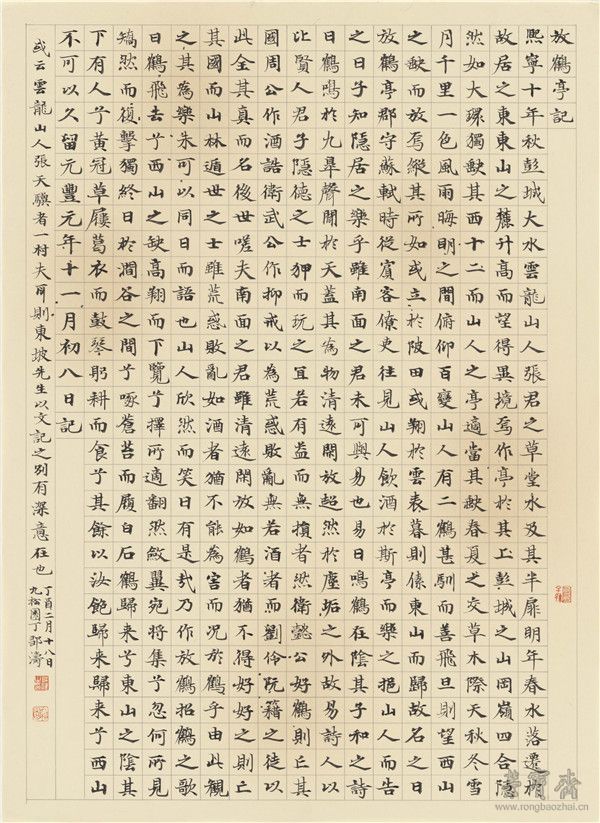 放鶴亭記
熙寧十年秋彭城大水雲龍山人張君之草堂水及其半扉明年春水落遷於
故居之東東山之麓升高而望得異境焉作亭於其上彭城之山岡嶺四合隱
然如大環獨缺其西十二而山人之亭適當其缺春夏之交草木際天秋冬雪
月千里一色風雨晦明之間俯仰百變山人有二鶴甚馴而善飛旦則望西山
之缺而放焉縱其所如或立於陂田或翔於雲表暮則傃東山而歸故名之曰
放鶴亭郡守蘇軾時從賓客僚吏往見山人飲酒於斯亭而樂之挹山人而告
之曰子知隱居之樂乎雖南面之君未可與易也易曰鳴鶴在陰其子和之詩
曰鶴鳴於九皋聲聞於天蓋其為物清遠閑放超然於塵垢之外故易詩人以
比賢人君子隱德之士狎而玩之宜若有益而無損者然衛懿公好鶴則亡其
國周公作酒誥衛武公作抑戒以為荒惑敗亂無若酒者而劉伶阮籍之徒以
此全其真而名後世嗟夫南面之君雖清遠閑放如鶴者猶不得好好之則亡
其國而山林遁世之士雖荒惑敗亂如酒者猶不能為害而況於鶴乎由此觀
之其為樂未可以同日而語也山人欣然而笑曰有是哉乃作放鶴招鶴之歌
曰鶴飛去兮西山之缺高翔而下覽兮擇所適翻然斂翼宛將集兮忽何所見
矯然而復擊獨終日於澗谷之間兮啄蒼苔而履白石鶴歸來兮東山之陰其
下有人兮黃冠草屨葛衣而鼓琴躬耕而食兮其餘以汝飽歸来歸来兮西山
不可以久留元豐元年十一月初八日記
或云雲龍山人張天驥者一村夫耳則東坡先生以文記之別有深意在也
丁酉二月十八日
九松園丁鄒濤
榮寶齋
www.rongbaozhai.cn